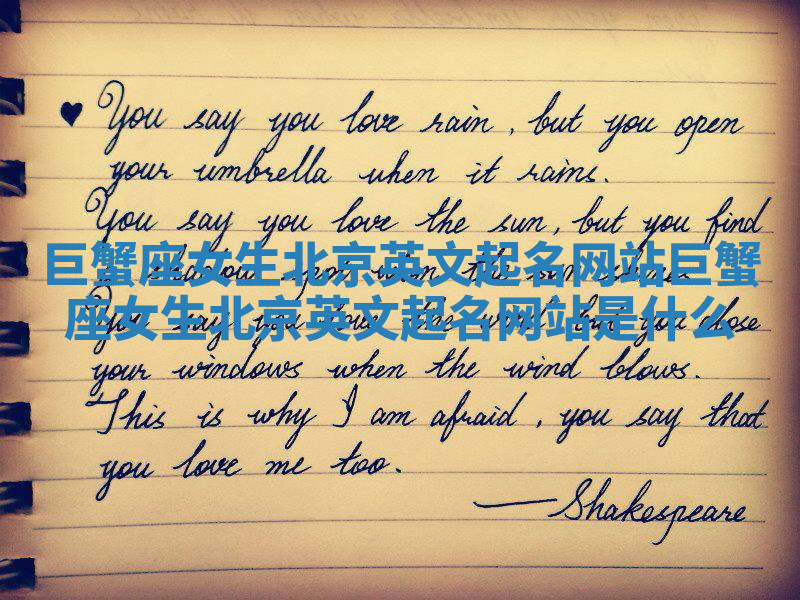 ♥ You say you love rain, but you open
your umbrella when it rains.
You say you love the sun, but you find
巨蟹座女生北京英文起名网站巨蟹
座女生北京英文起名网站是什么
You say you love the wind, but you close
your windows when the wind blows.
This is why I am afraid, you say that
you love me too.
—Shakespeare